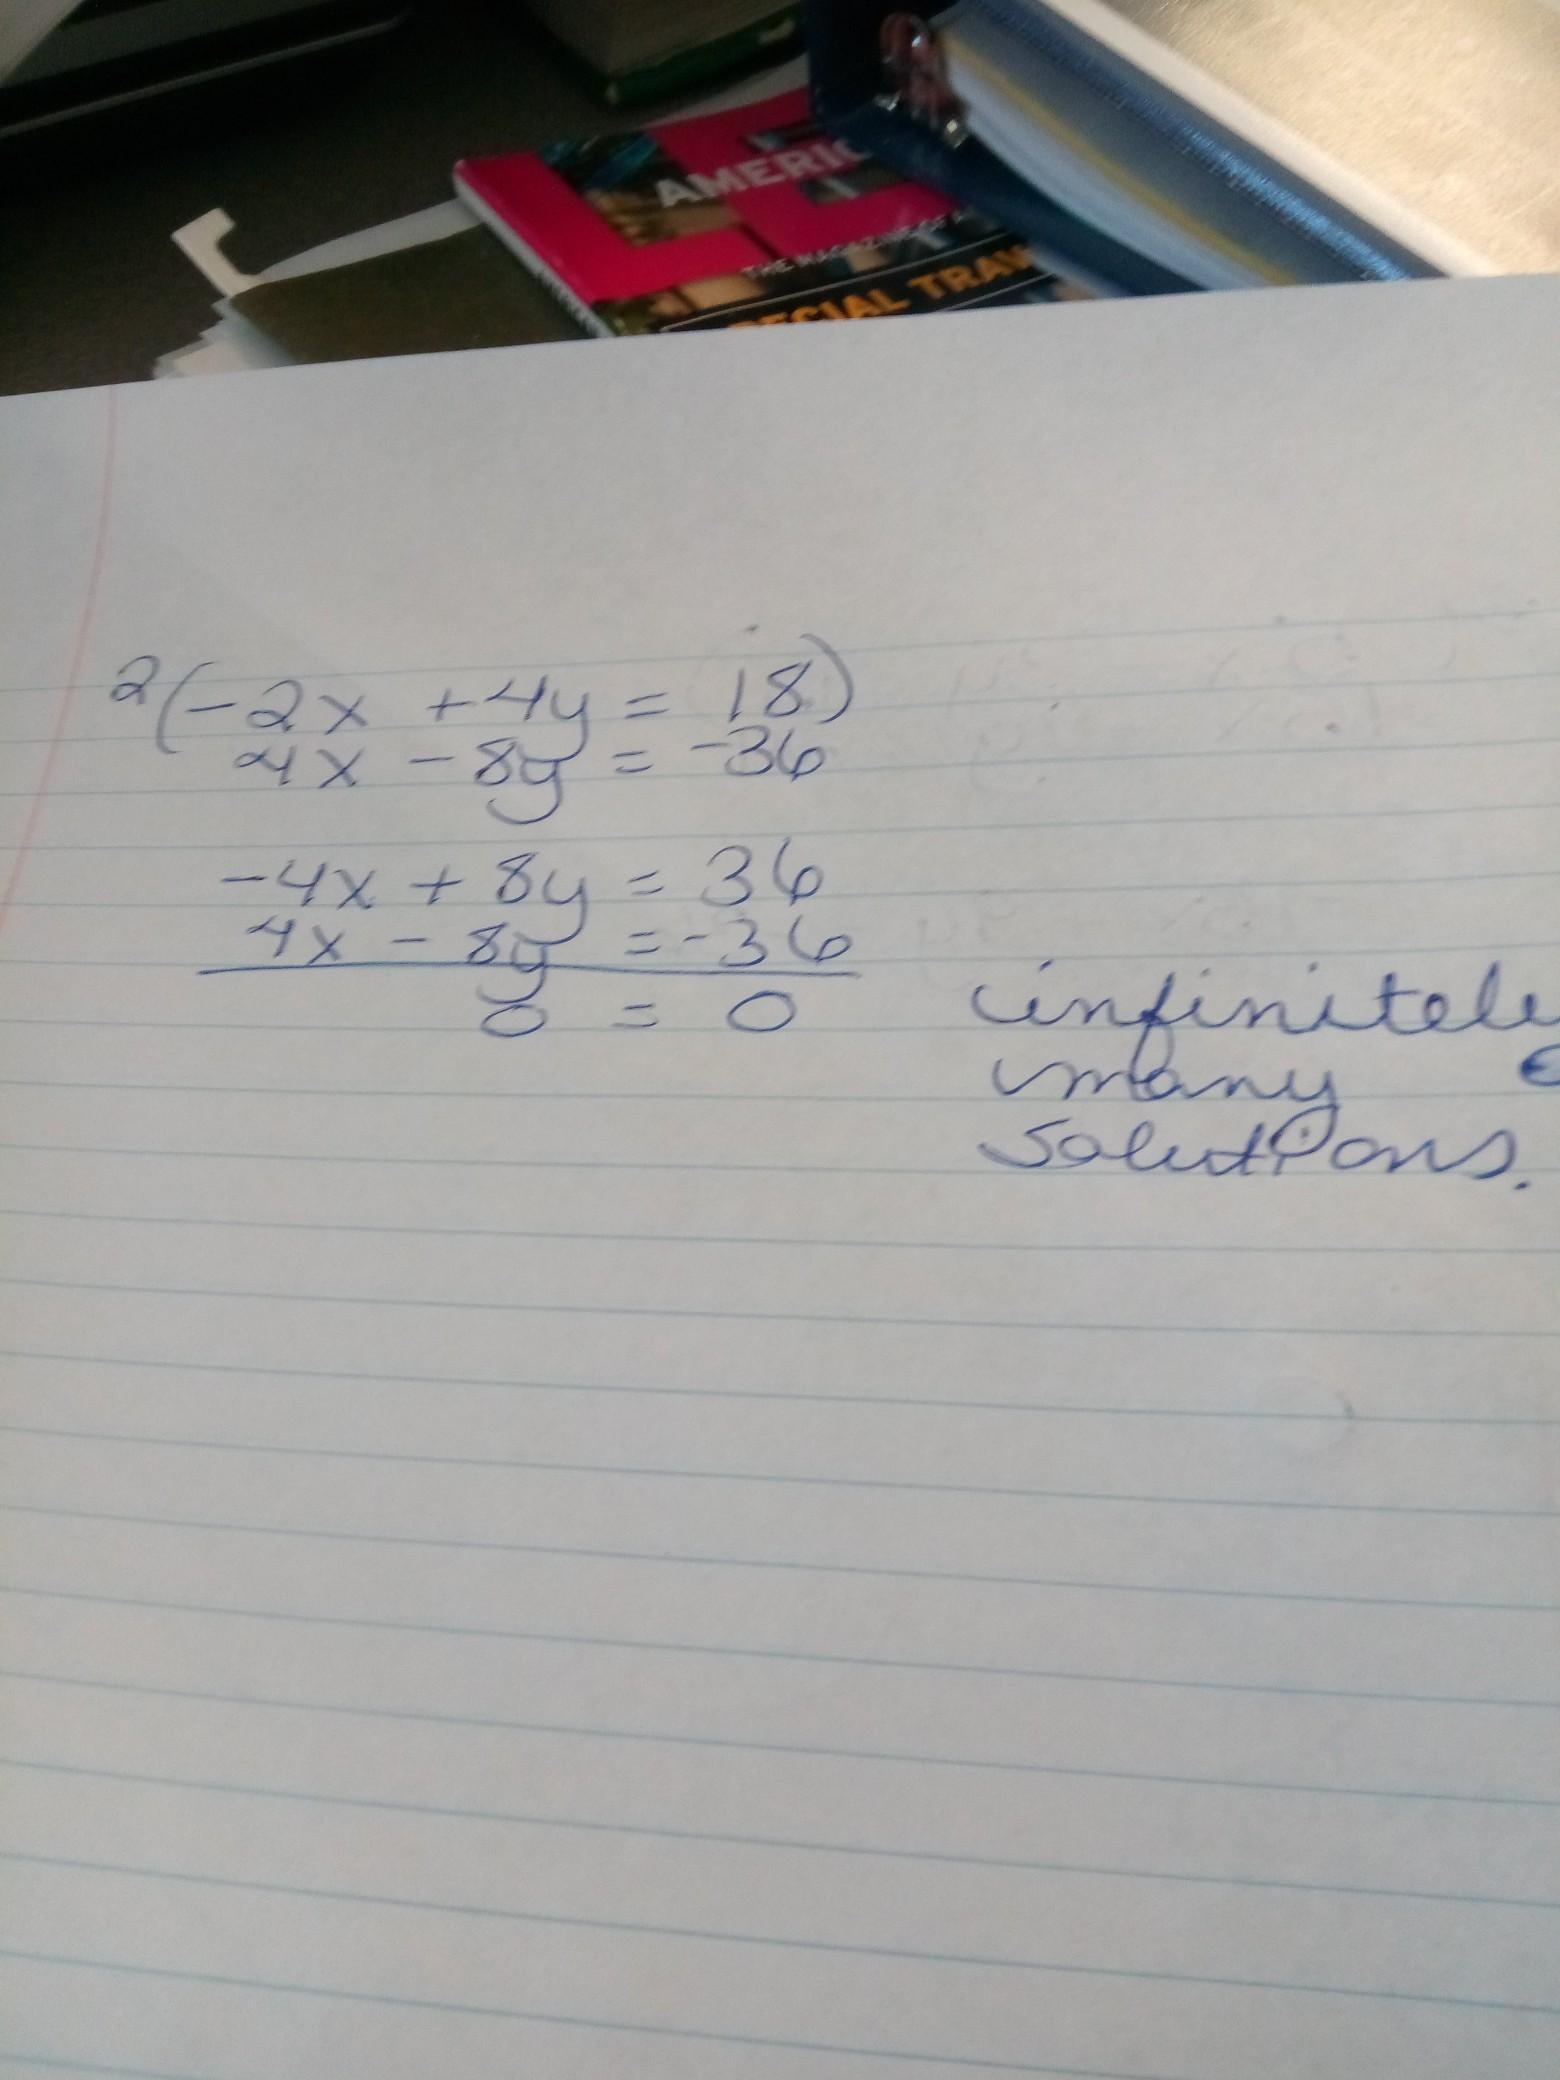 AMERIC
THE MAGAZINE OF A
SPECIAL TRAV
2(-2x + 4y = 18)
4x - 8y = -36
-4x + 8y = 36
4x - 8y = -36
0 = 0
infinitely
many
solutions.